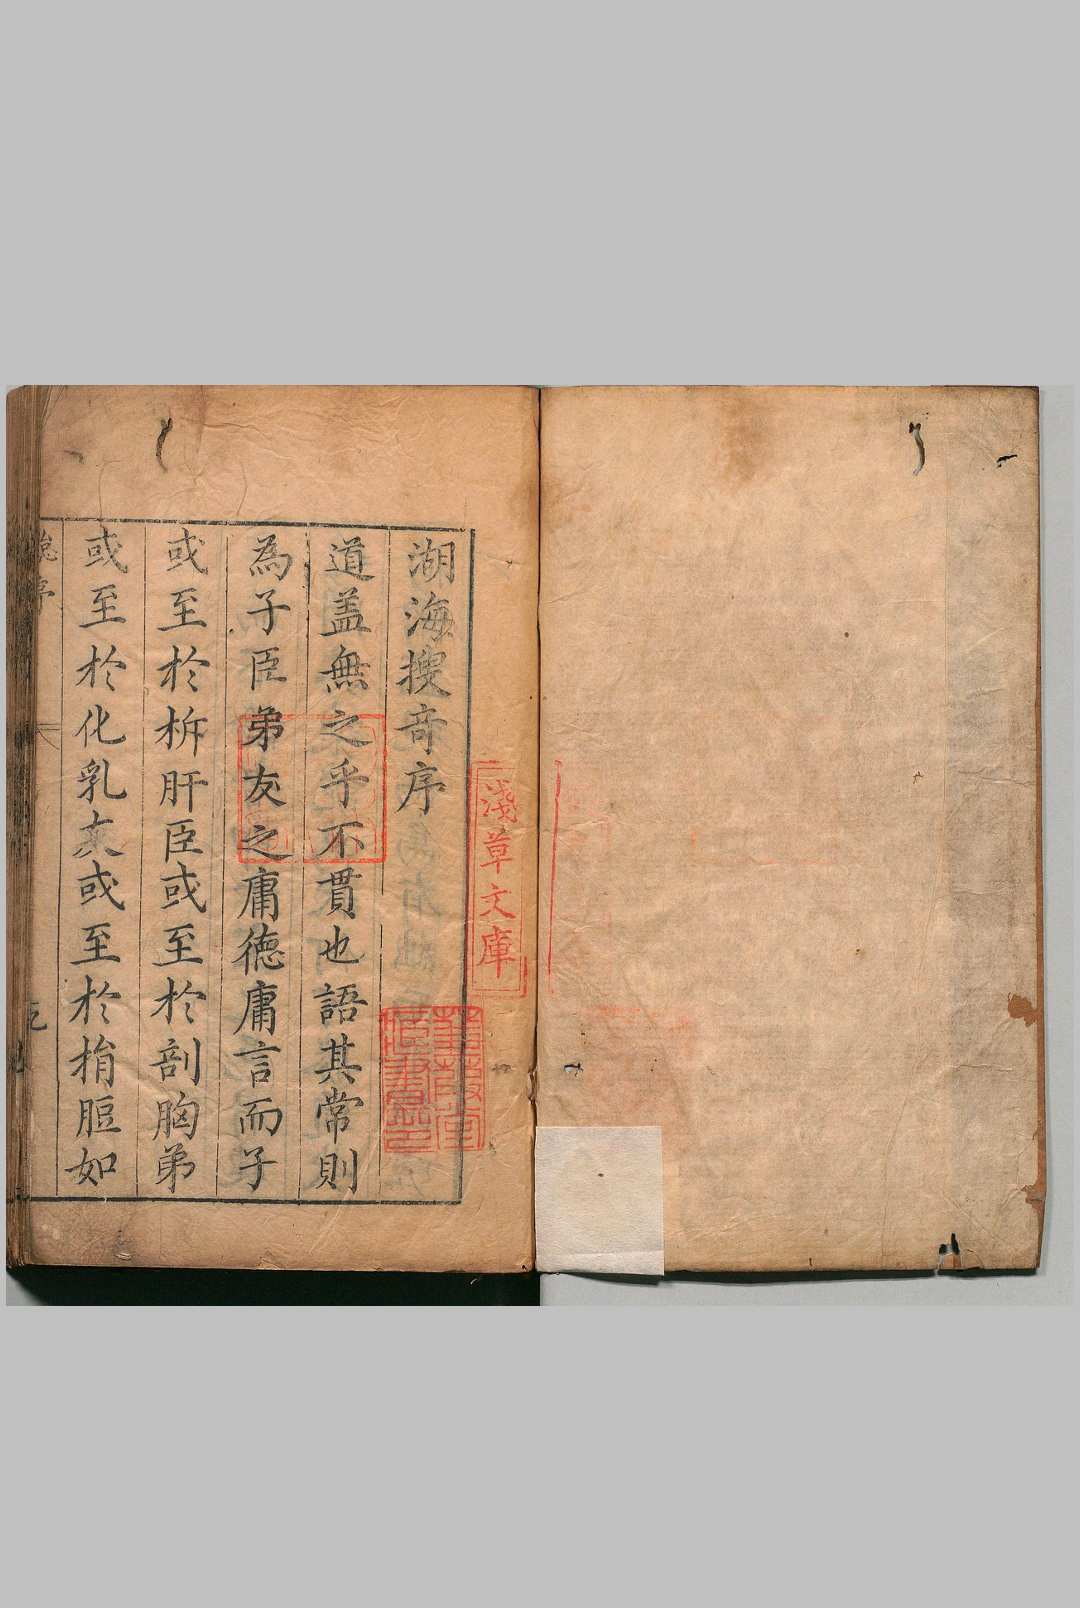 湖海搜奇序
道盖無之乎不貫也語其常則
為子臣弟友之庸德庸言而子
或至於析肝臣或至於剖胸弟
或至於化乳友或至於捐脰如
淺草文庫